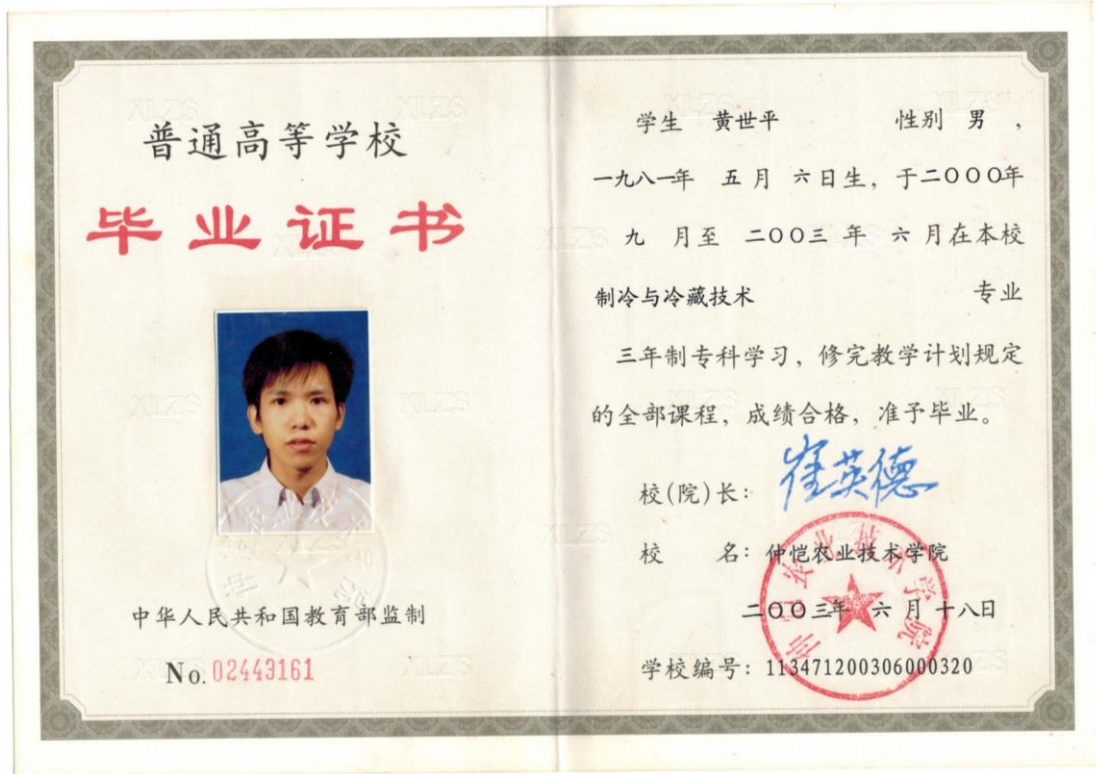 普通高等学校
毕业证书
中华人民共和国教育部监制
No. 02443161
学生 黄世平 性别 男，
一九八一年 五月 六日生，于二〇〇〇年
九 月至 二〇〇三 年 六 月在本校
制冷与冷藏技术 专业
三年制专科学习，修完教学计划规定
的全部课程，成绩合格，准予毕业。
校(院)长： 崔英德
校 名：仲恺农业技术学院
二〇〇三年 六 月 十八日
学校编号：113471200306000320
仲恺农业技术学院
XLZS